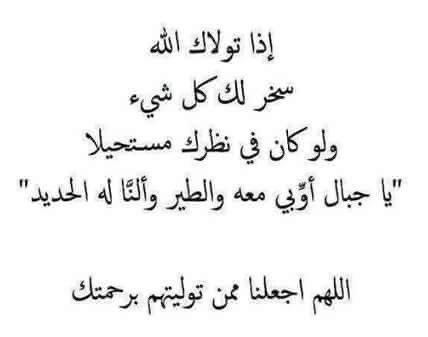 إذا تولاك الله
سخر لك كل شيء
ولو كان في نظرك مستحيلا
"يا جبال أوِّبي معه والطير وألنَّا له الحديد"
اللهم اجعلنا ممن توليتهم برحمتك